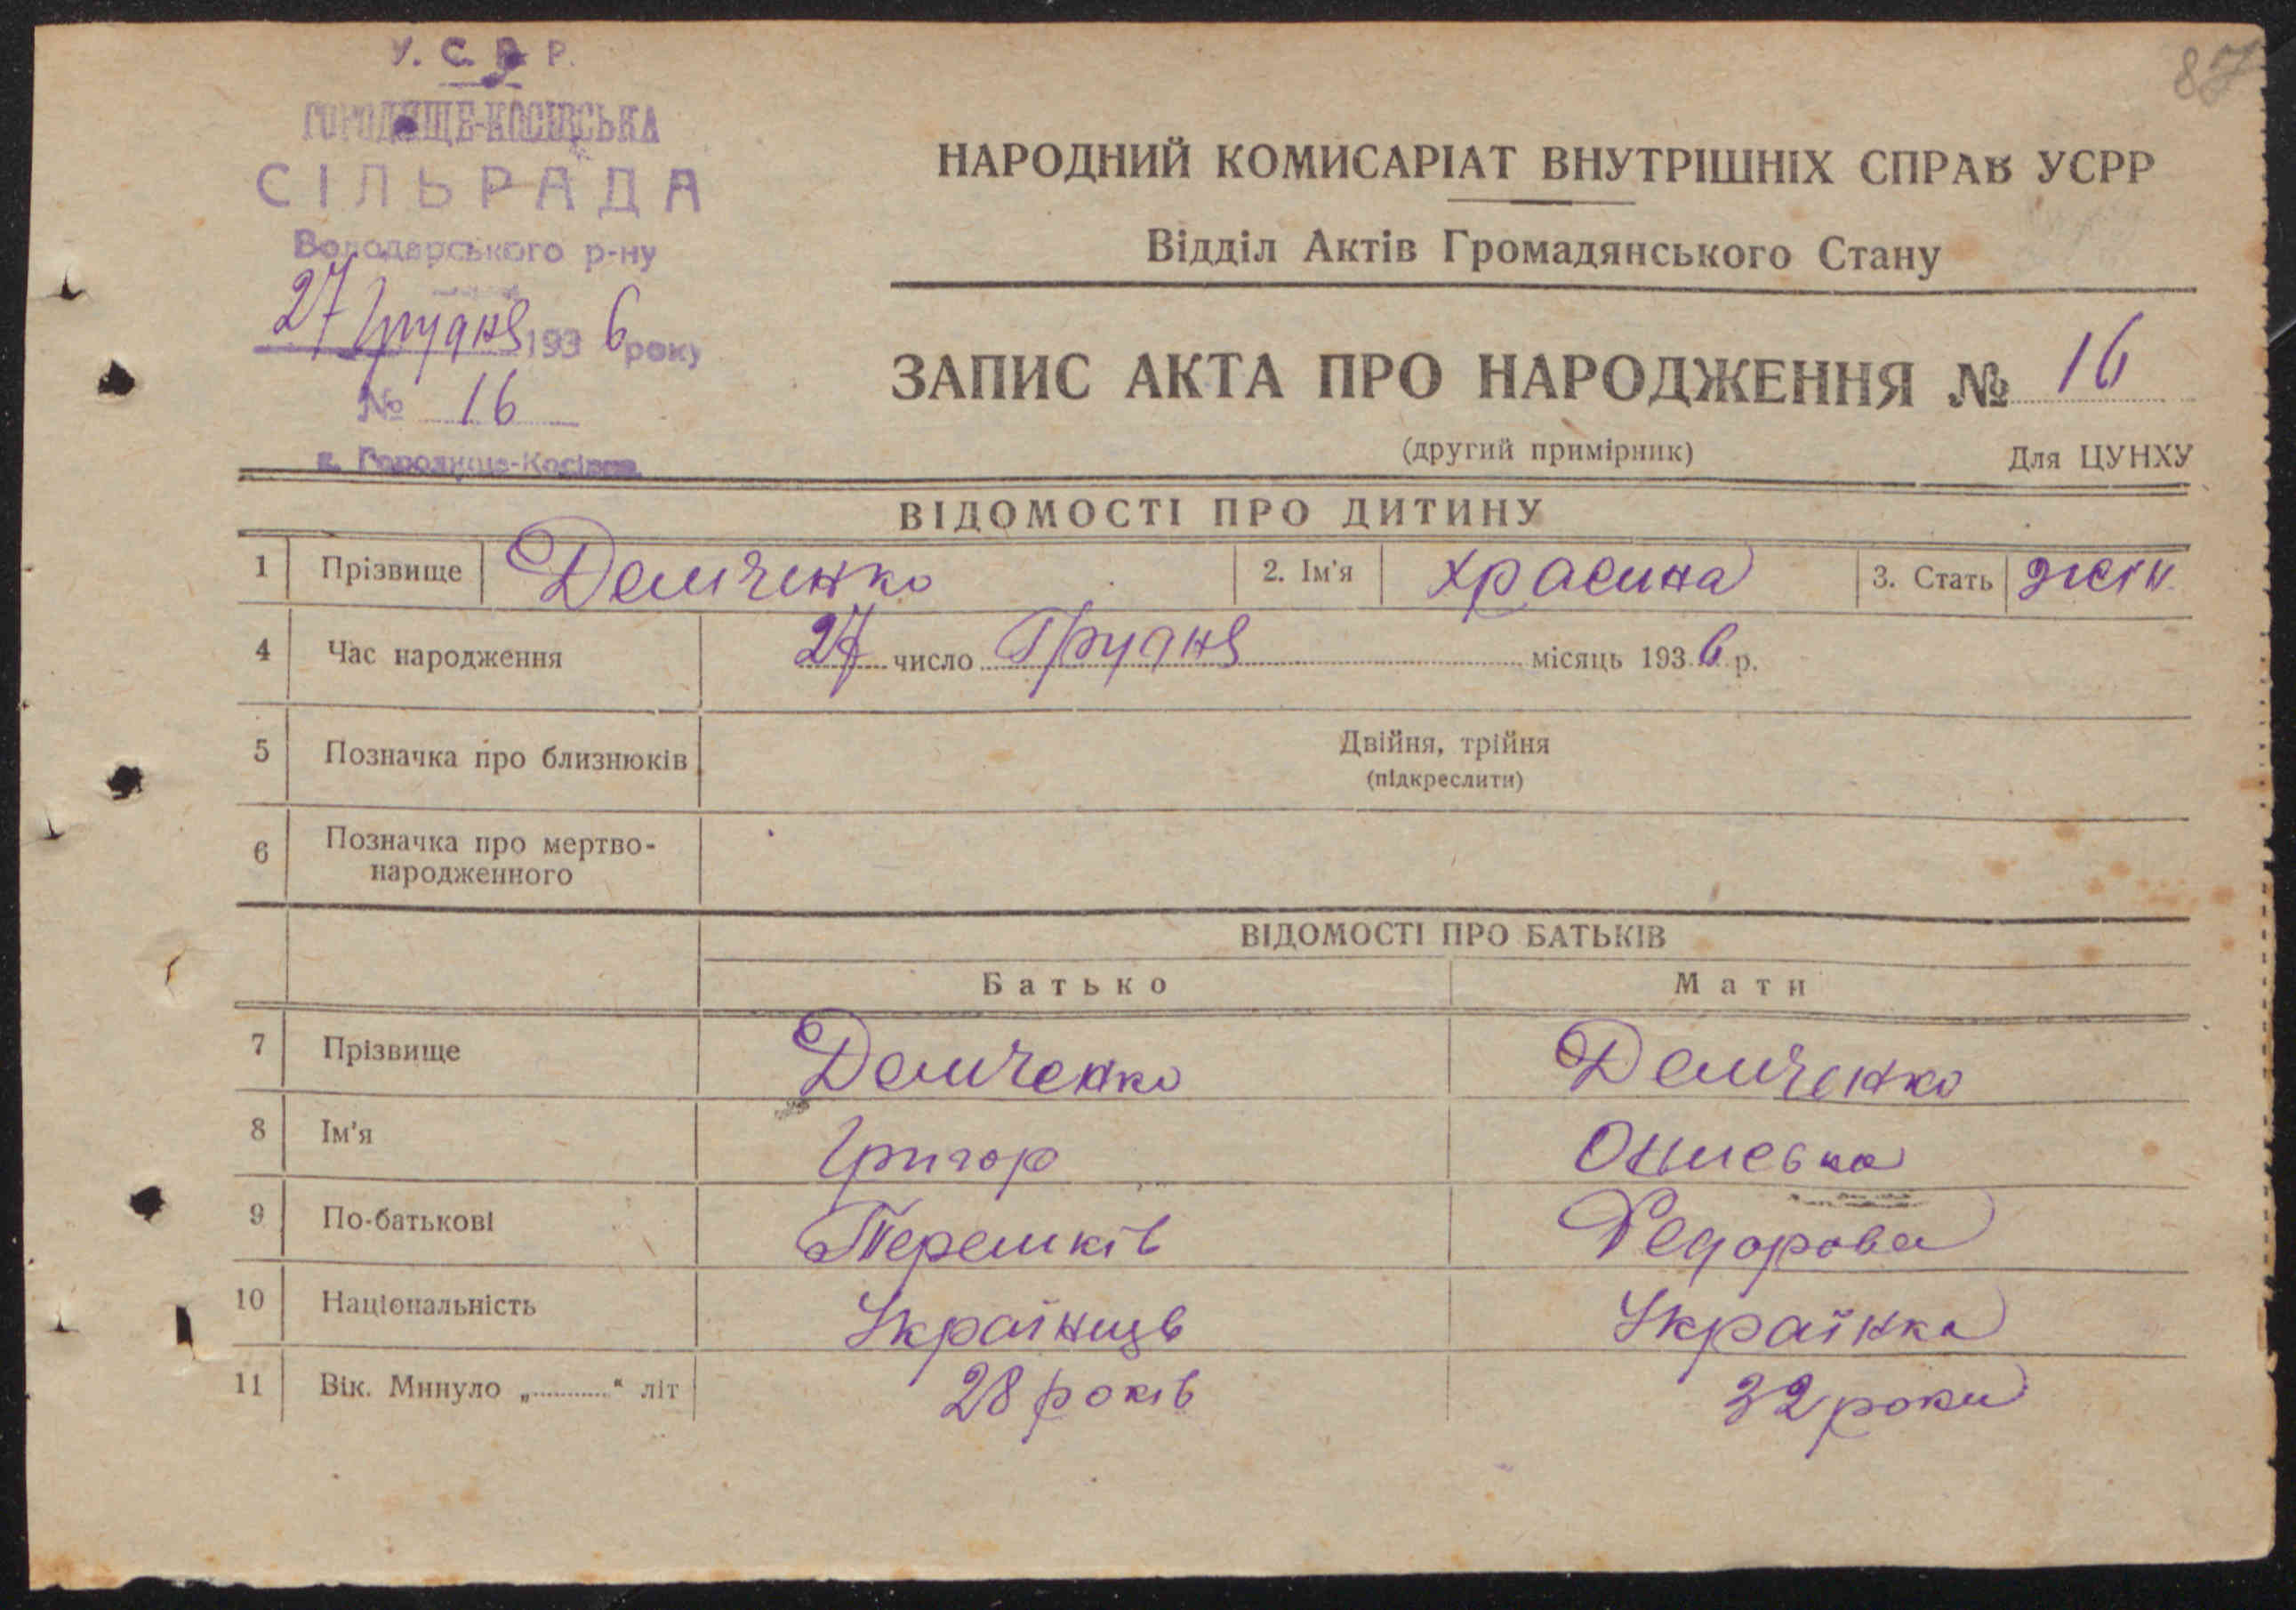 У. С. Р. Р.
87
ГОРОДИЩЕ-КОСІВСЬКА
СІЛЬРАДА
Володарського р-ну
27 Грудня 1936 року
№ 16
с. Городище-Косівка
НАРОДНИЙ КОМИСАРІАТ ВНУТРІШНІХ СПРАВ УСРР
Відділ Актів Громадянського Стану
ЗАПИС АКТА ПРО НАРОДЖЕННЯ № 16
(другий примірник) Для ЦУНХУ
ВІДОМОСТІ ПРО ДИТИНУ
1 Прізвище Демченко 2. Ім'я 3. Стать жін.
4 Час народження 27 число Грудня місяць 1936 р.
5 Позначка про близнюків Двійня, трійня
(підкреслити)
6 Позначка про мертво-
народженного
ВІДОМОСТІ ПРО БАТЬКІВ
Батько Мати
7 Прізвище Демченко Демченко
8 Ім'я Григор
9 По-батькові Федорова
10 Національність Українець Українка
11 Вік. Минуло „............“ літ 28 років 32 роки